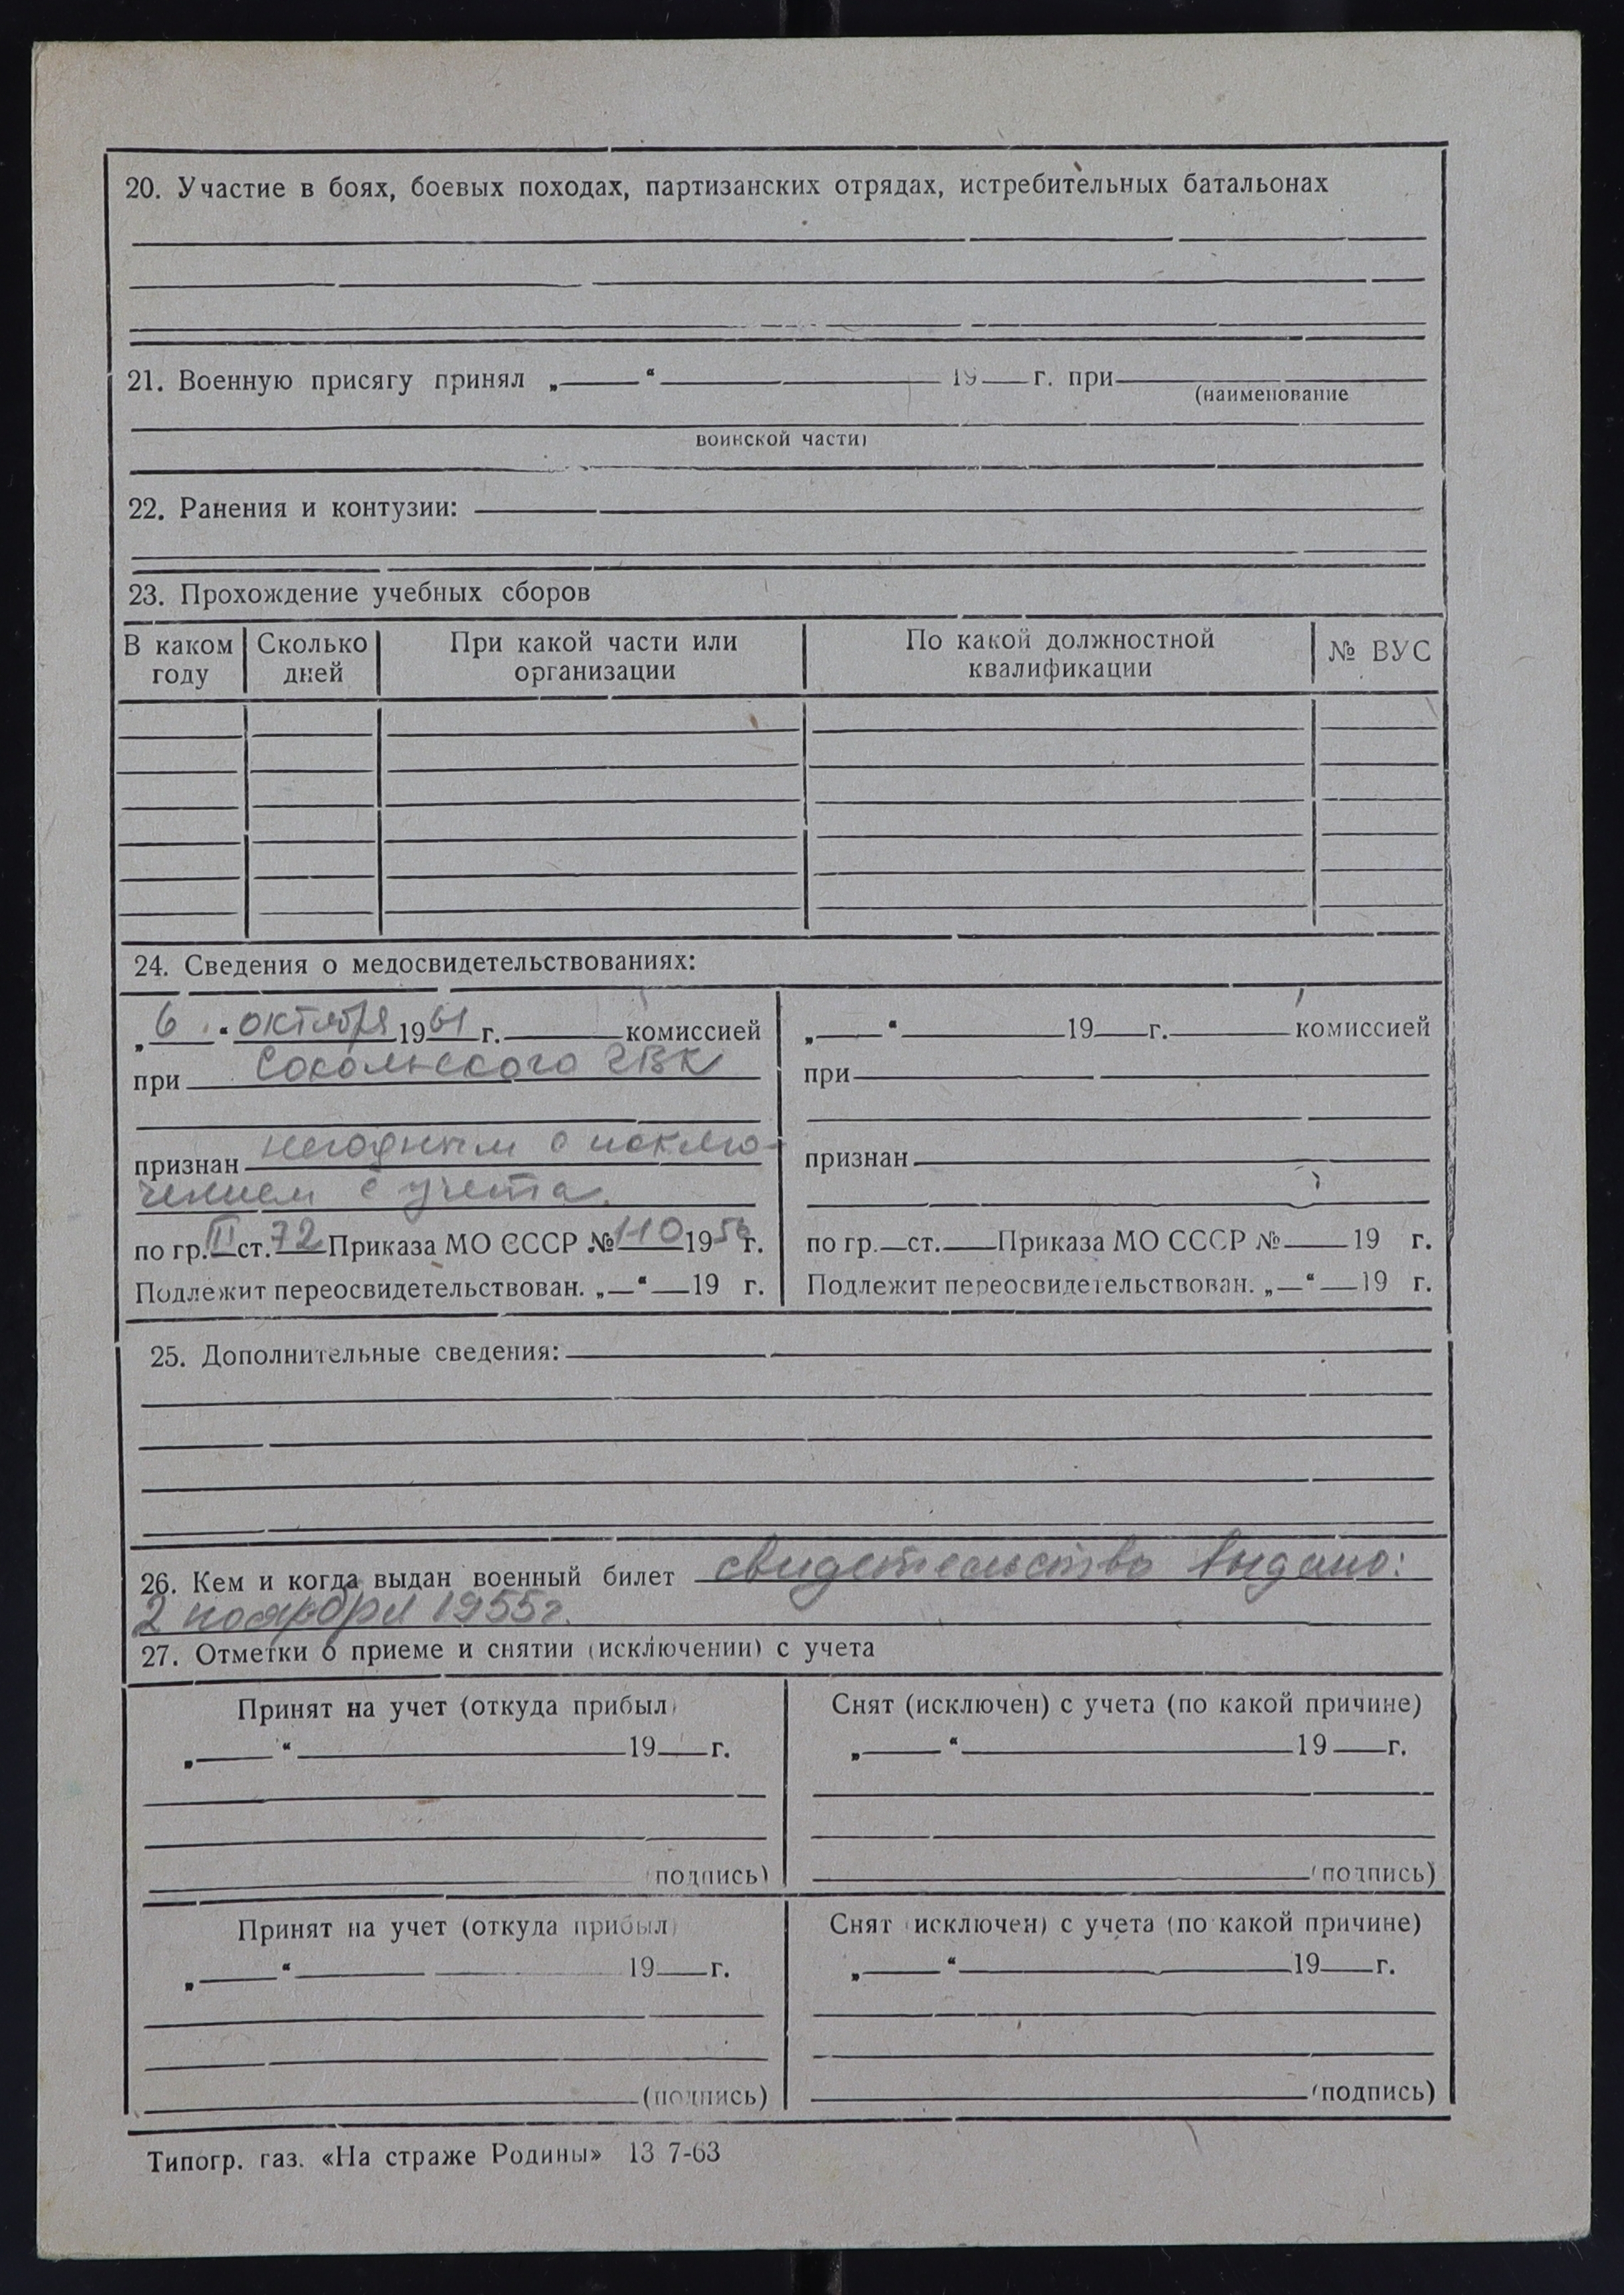 20. Участие в боях, боевых походах, партизанских отрядах, истребительных батальонах
21. Военную присягу принял „ “ 19 г. при
(наименование
воинской части)
22. Ранения и контузии:
23. Прохождение учебных сборов
В каком году Сколько дней При какой части или организации По какой должностной квалификации № ВУС
24. Сведения о медосвидетельствованиях:
„6“ октября 1961 г. комиссией
при Сокольского ГВК
признан негодным с исклю-
чением с учета.
по гр. II ст. 72 Приказа МО СССР № 110 1956 г.
Подлежит переосвидетельствован. „ “ 19 г.
„ “ 19 г. комиссией
при
признан
по гр. ст. Приказа МО СССР № 19 г.
Подлежит переосвидетельствован. „ “ 19 г.
25. Дополнительные сведения:
26. Кем и когда выдан военный билет свидетельство выдано:
2 ноября 1955г.
27. Отметки о приеме и снятии (исключении) с учета
Принят на учет (откуда прибыл)
„ “ 19 г.
(подпись)
Снят (исключен) с учета (по какой причине)
„ “ 19 г.
(подпись)
Принят на учет (откуда прибыл)
„ “ 19 г.
(подпись)
Снят (исключен) с учета (по какой причине)
„ “ 19 г.
(подпись)
Типогр. газ. «На страже Родины» 13 7-63